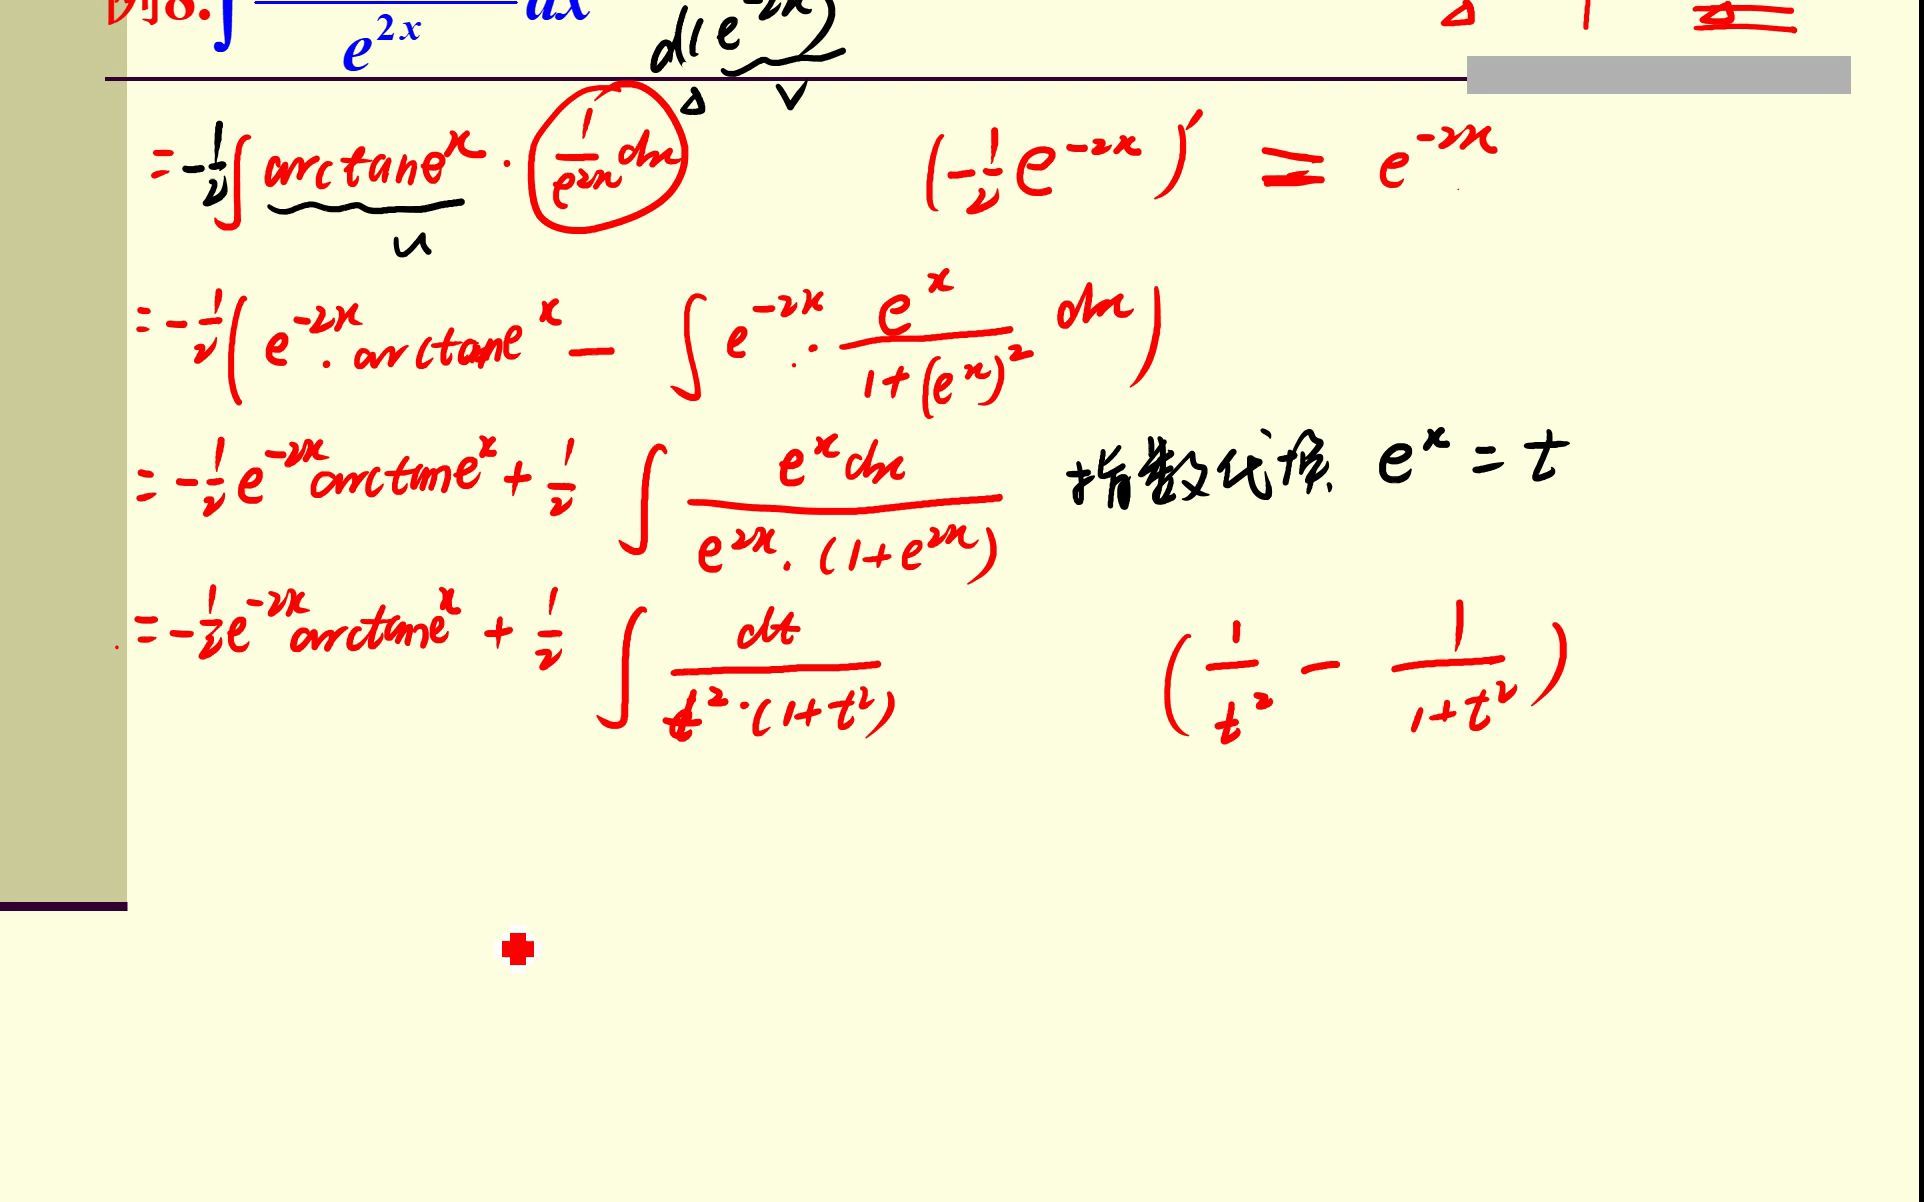 例8.∫ dx
e^{2x} d(e^{-2x})
Δ v
= -1/2 ∫ arctane^x · 1/e^{2x} dx (-1/2 e^{-2x})' = e^{-2x}
u
= -1/2 ( e^{-2x} · arctane^x - ∫ e^{-2x} · e^x/(1+(e^x)^2) dx )
= -1/2 e^{-2x} arctane^x + 1/2 ∫ e^x dx/(e^{2x} · (1+e^{2x})) 指数代换 e^x = t
= -1/2 e^{-2x} arctane^x + 1/2 ∫ dt/(t^2 · (1+t^2)) (1/t^2 - 1/(1+t^2))